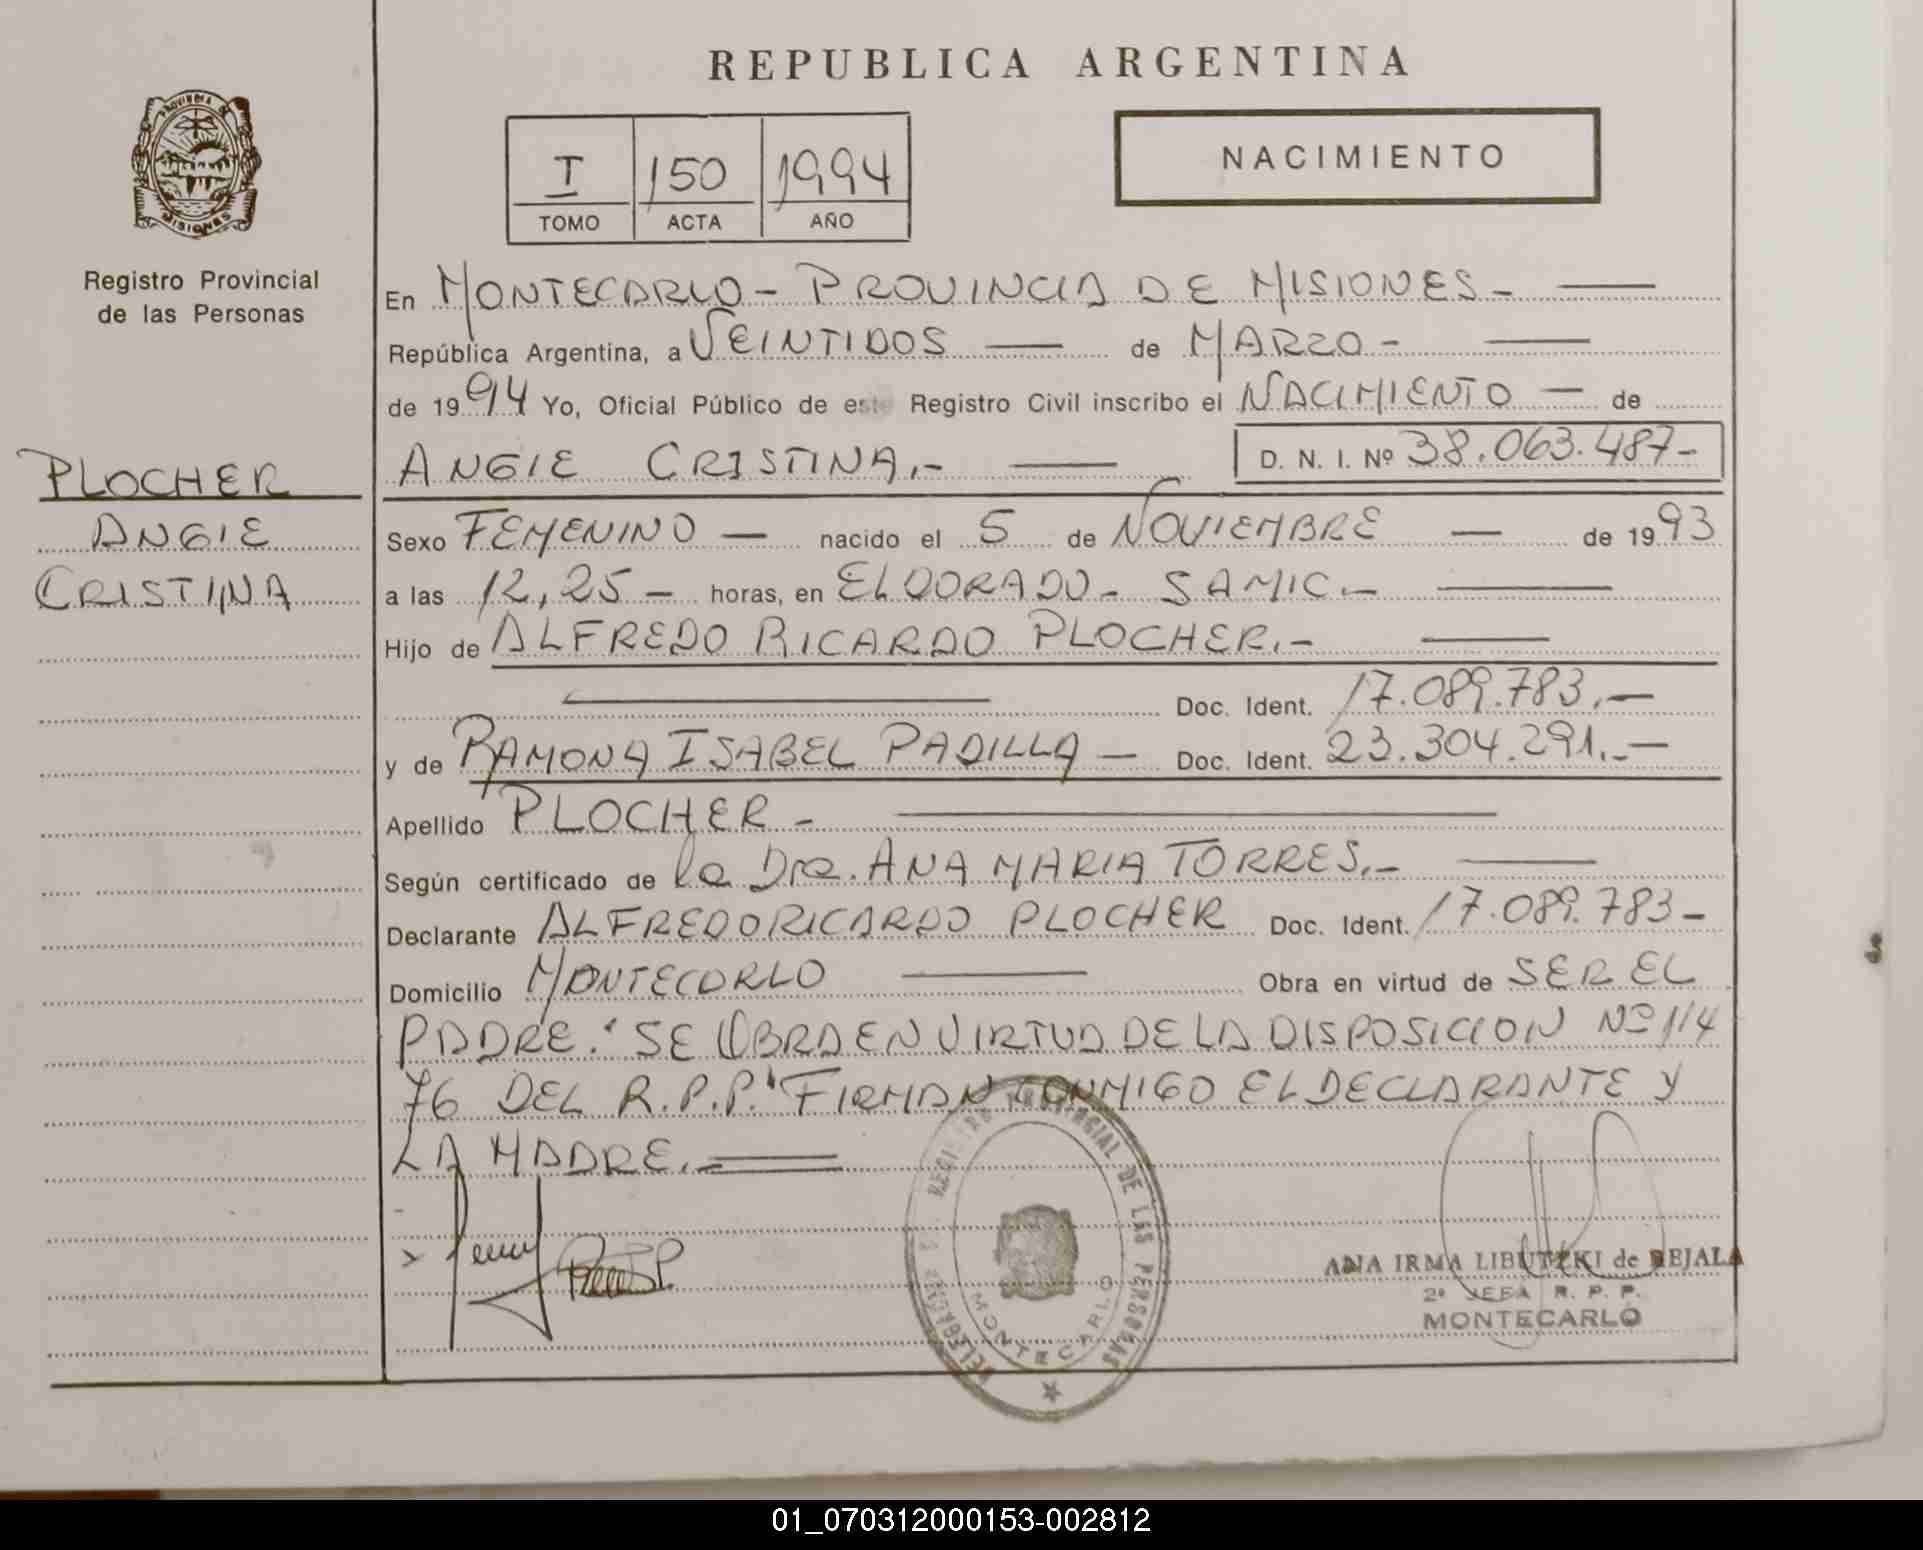 REPUBLICA ARGENTINA
PROVINCIA DE
MISIONES
I 150 1994
TOMO ACTA AÑO
NACIMIENTO
Registro Provincial
de las Personas
En MONTECARLO - PROVINCIA DE MISIONES -
República Argentina, a VEINTIDOS de MARZO -
de 1994 Yo, Oficial Público de este Registro Civil inscribo el NACIMIENTO - de
ANGIE CRISTINA.- D. N. I. Nº 38.063.487-
PLOCHER
ANGIE
CRISTINA
Sexo FEMENINO - nacido el 5 de NOVIEMBRE - de 1993
a las 12,25 - horas, en ELDORADO - SAMIC.-
Hijo de ALFREDO RICARDO PLOCHER.-
Doc. Ident. 17.089.783.-
y de RAMONA ISABEL PADILLA - Doc. Ident. 23.304.291.-
Apellido PLOCHER -
Según certificado de la Dra. ANA MARIA TORRES.-
Declarante ALFREDO RICARDO PLOCHER Doc. Ident. 17.089.783-
Domicilio MONTECARLO Obra en virtud de SER EL
PADRE. "SE OBRA EN VIRTUD DE LA DISPOSICION Nº 114
76 DEL R.P.P." FIRMAN CONMIGO EL DECLARANTE Y
LA MADRE.-
REGISTRO PROVINCIAL DE LAS PERSONAS
MONTECARLO
ANA IRMA LIBUTZKI de REJALA
2º JEFA R. P. P.
MONTECARLO
01_070312000153-002812